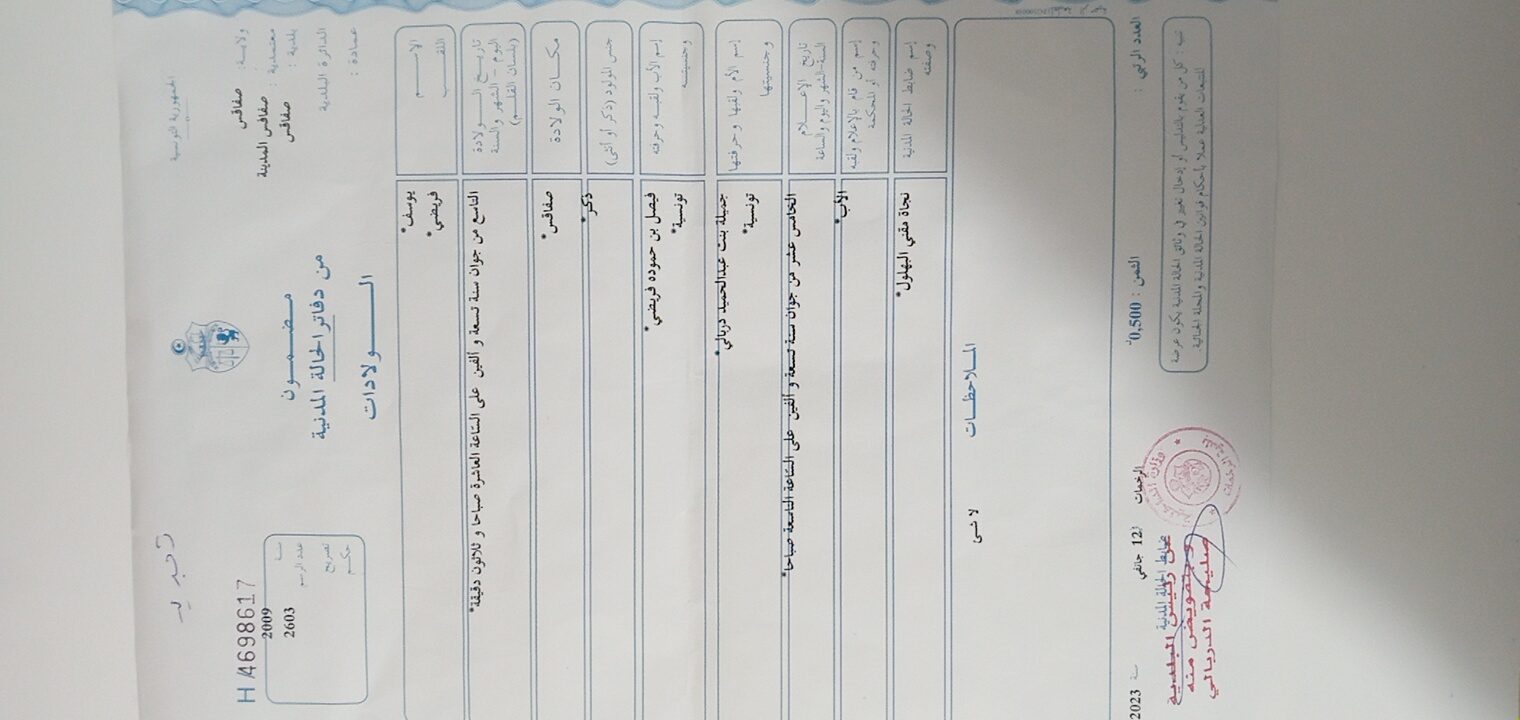 الجمهورية التونسية
ولاية: صفاقس
معتمدية: صفاقس المدينة
بلدية: صفاقس
الدائرة البلدية
عمادة:
مضمون
من دفاتر الحالة المدنية
الولادات
H 4698617
سنة 2009
عدد الرسم 2603
تصريح
حكم
الاسم *يوسف*
اللقب *فريضي*
تاريخ الولادة
اليوم - الشهر والسنة
(بلسان القلم)
التاسع من جوان سنة تسعة و ألفين على الساعة العاشرة صباحا و ثلاثون دقيقة*
مكان الولادة صفاقس*
جنس المولود (ذكر أو أنثى) ذكر*
إسم الأب ولقبه وحرفته فيصل بن حموده فريضي*
وجنسيته تونسية*
إسم الأم ولقبها وحرفتها جميلة بنت عبدالحميد دربالي*
وجنسيتها تونسية*
تاريخ الإعلام
السنة-الشهر واليوم والساعة
الخامس عشر من جوان سنة تسعة و ألفين على الساعة التاسعة صباحا*
إسم من قام بالإعلام ولقبه
وحرفته أو المحكمة
الأب*
إسم ضابط الحالة المدنية
وصفته
نجاة مقني البهلول*
الملاحظات
لا شئ
العدد الرتبي :
الثمن : 0,500د
الرخمات في 12 جانفي سنة 2023
ضابط الحالة المدنية
عن رئيس البلدية
وبتفويض منه
صليحة الدربالي
تنبيه : كل من يقوم بالتدليس أو إدخال تغيير في وثائق الحالة المدنية يكون عرضة
للتتبعات العدلية عملا بأحكام قوانين الحالة المدنية والمجلة الجنائية.